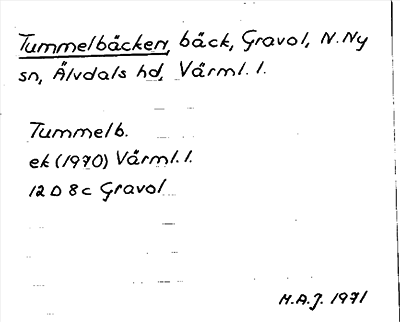 Tummelbäcken, bäck, Gravol, N. Ny
sn, Älvdals hd, Värml. l.
Tummelb.
ek (1970) Värml. l.
12 D 8c Gravol
H.A.J. 1971